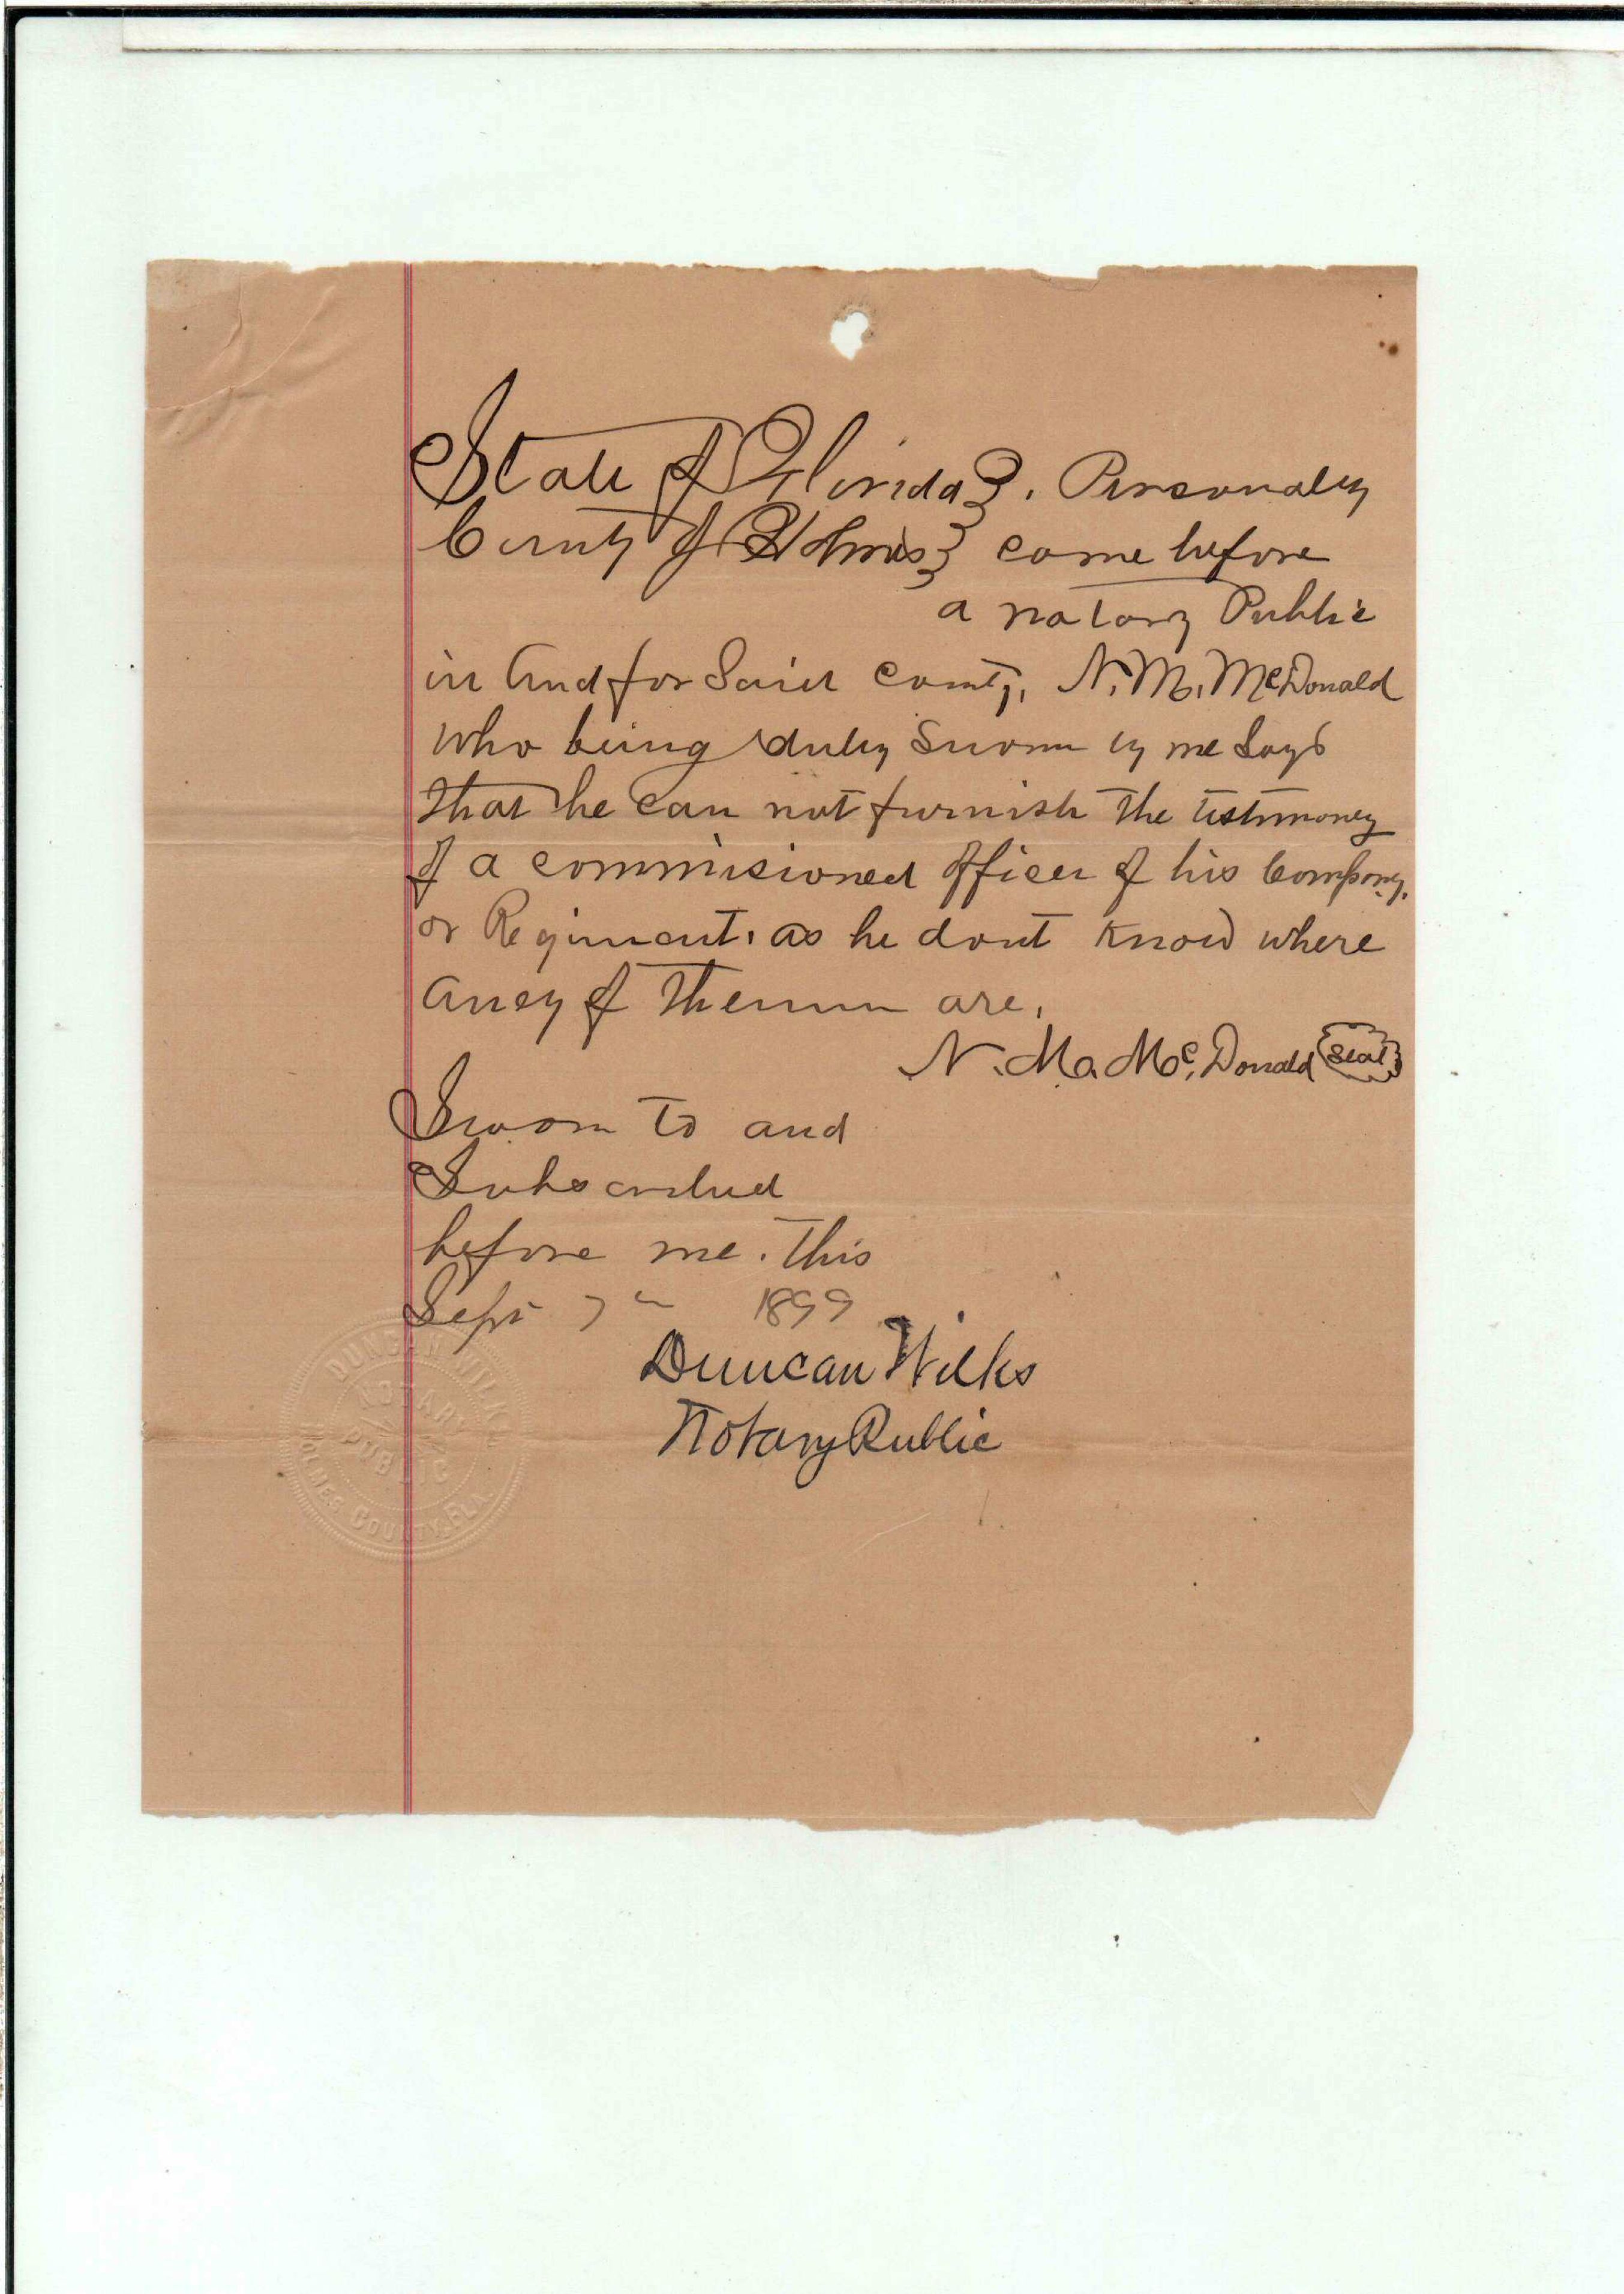 State of Florida }. Personaley
County of Holmes } come before
a notary Public
in and for Said County, N. M. McDonald
who being duley Sworn by me Says
that he can not furnish the testimoney
of a commisioned officer of his Compony,
or Regiment, as he dont know where
aney of Themm are.
N. M. McDonald Seal
Sworn to and
Subscribed
before me. this
Sept 7" 1899
Duncan Wilks
Notary Public
DUNCAN WILKS
NOTARY
PUBLIC
HOLMES COUNTY, FLA.